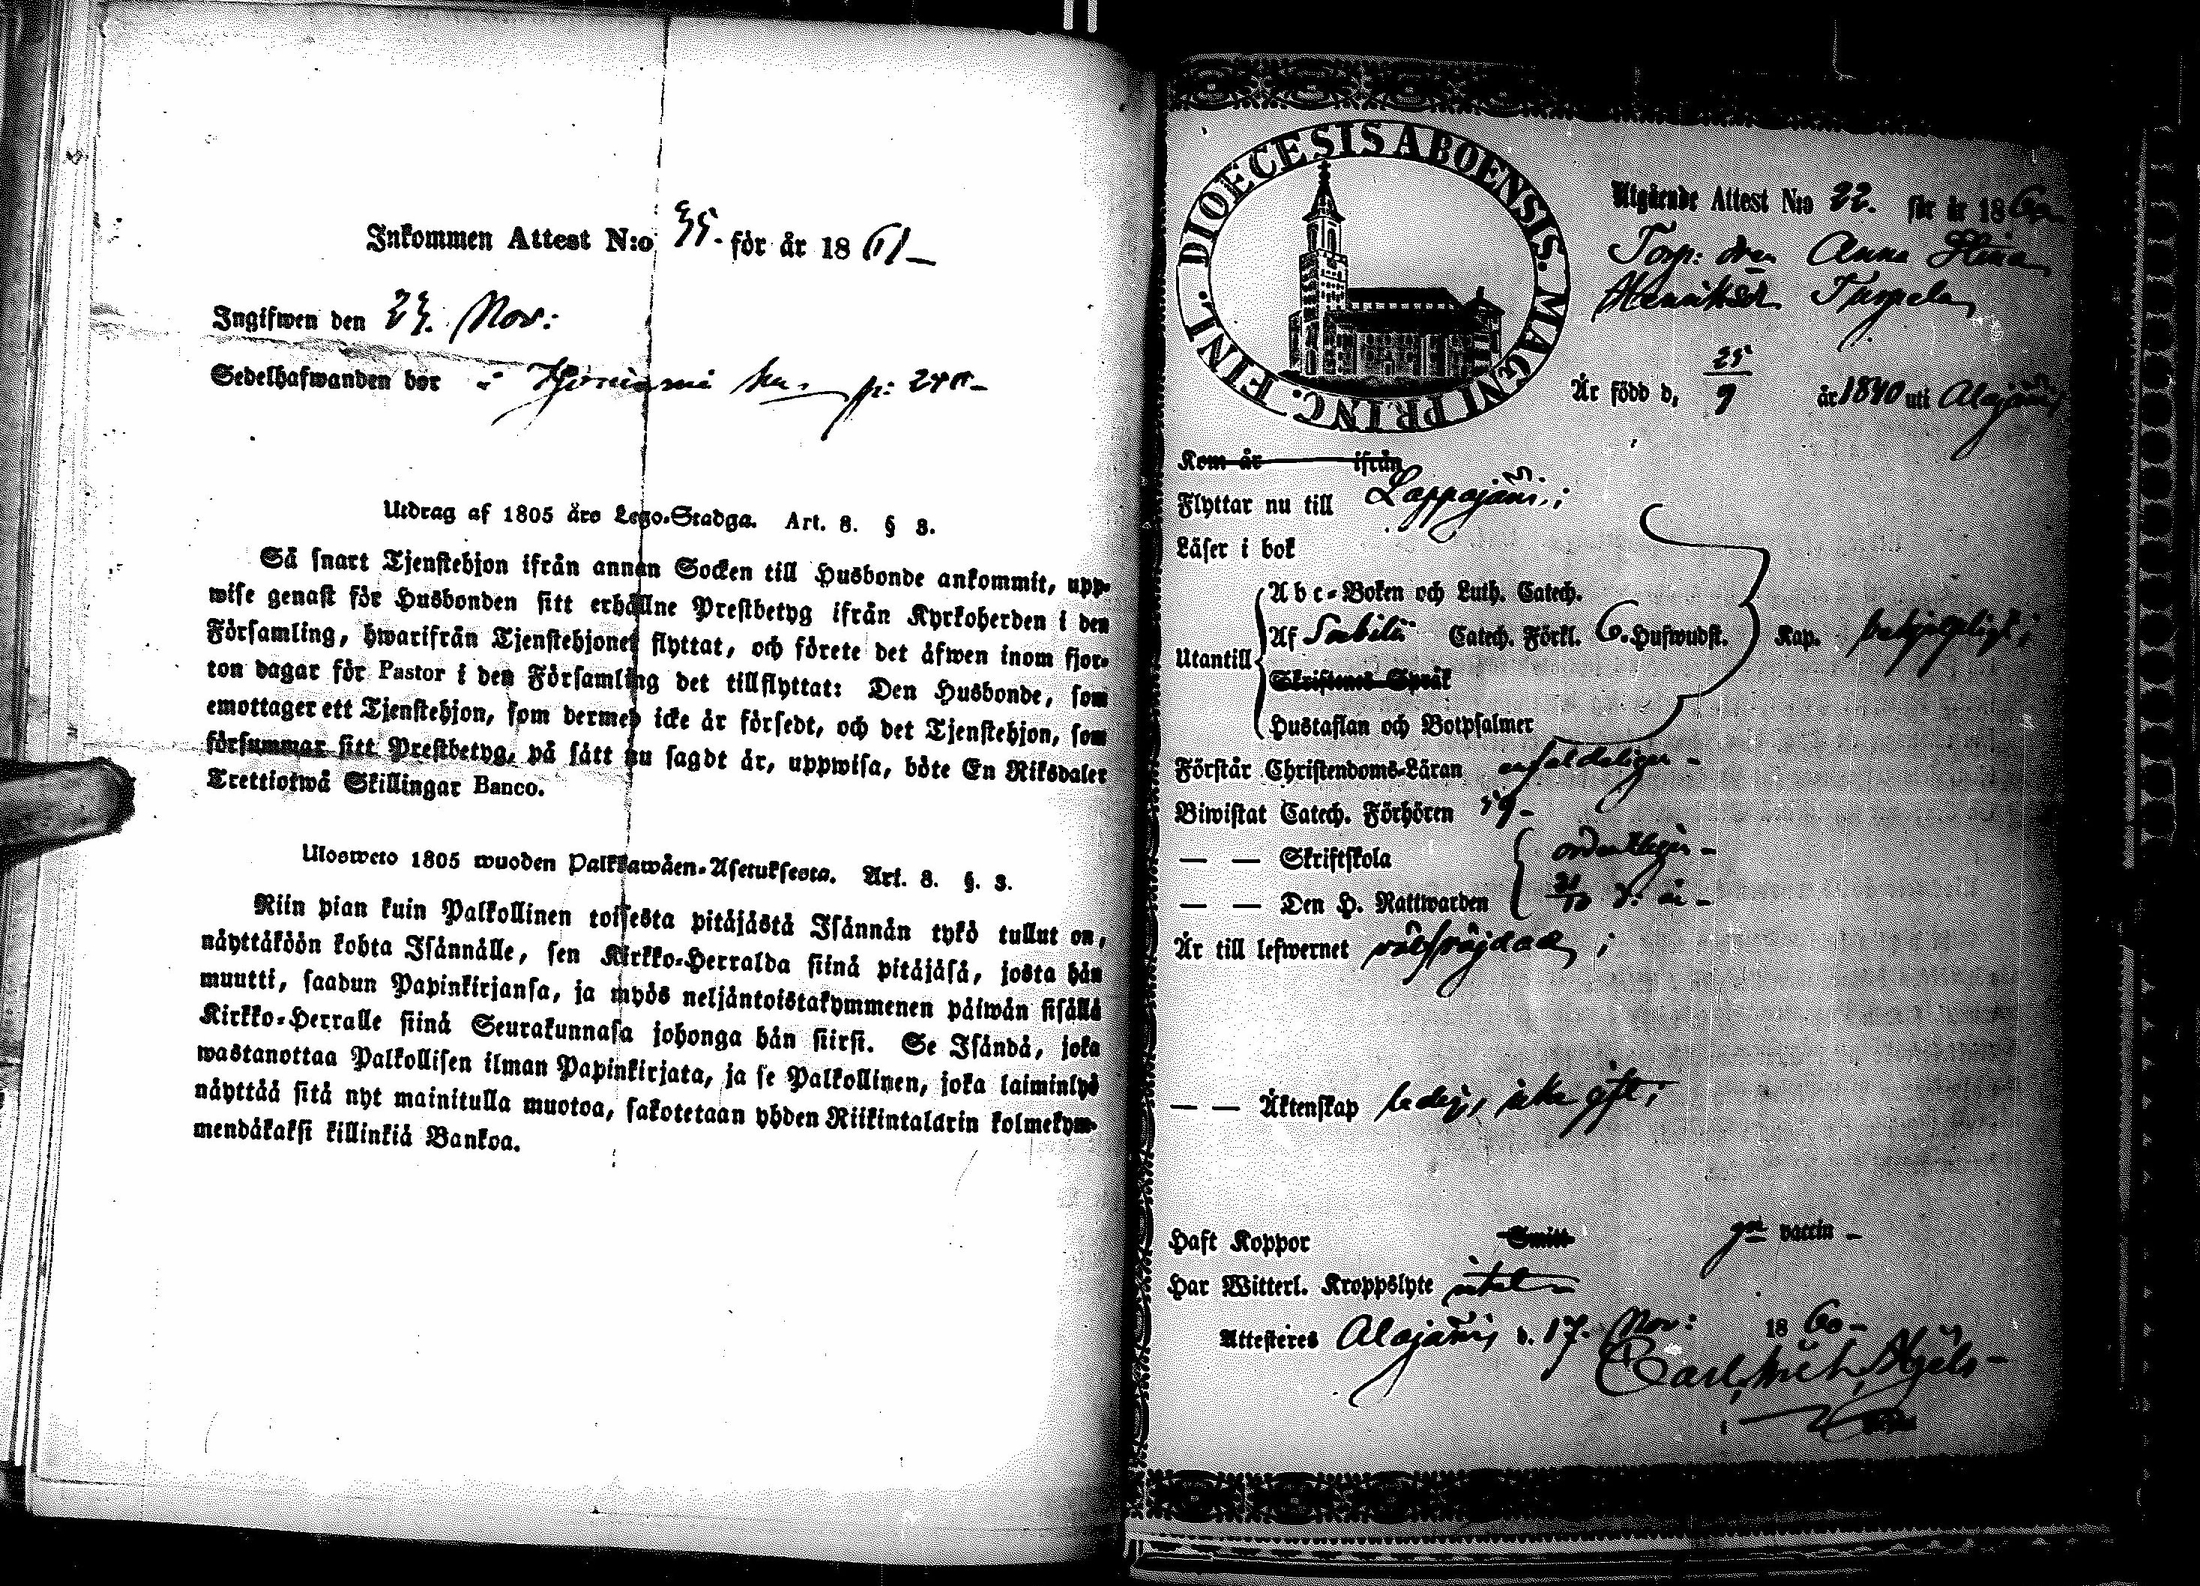 Inkommen Attest N:o 35. för år 1861
Ingifwen den 23. Nov:
Sedelhafwanden bor i
Utdrag af 1805 års Lego-Stadga. Art. 8. § 3.
Så snart Tjenstehjon ifrån annan Socken till Husbonde ankommit, upp-
wise genast för Husbonden sitt erhållne Prestbetyg ifrån Kyrkoherden i den
Församling, hwarifrån Tjenstehjonet flyttat, och förete det äfwen inom fjor-
ton dagar för Pastor i den Församling det tillflyttat: Den Husbonde, som
emottager ett Tjenstehjon, som dermed icke är försedt, och det Tjenstehjon, som
försummar sitt Prestbetyg, på sätt nu sagdt är, uppwisa, böte En Riksdaler
Trettiotwå Skillingar Banco.
Ulosweto 1805 wuoden Palkkawäen-Asetuksesta. Art. 8. §. 3.
Niin pian kuin Palkollinen toisesta pitäjästä Isännän tykö tullut on,
näyttäköön kohta Isännälle, sen Kirkko-Herralda siinä pitäjäsä, josta hän
muutti, saadun Papinkirjansa, ja myös neljäntoistakymmenen päiwän sisällä
Kirkko-Herralle siinä Seurakunnasa johonga hän siirsi. Se Isändä, joka
wastanottaa Palkollisen ilman Papinkirjata, ja se Palkollinen, joka laiminlyö
näyttää sitä nyt mainitulla muotoa, sakotetaan yhden Riikintalarin kolmekym-
mendäkaksi killinkiä Bankoa.
DIOECESIS ABOENSIS. MAGNI PRINC. FINL.
Utgående Attest N:o 22. för år 1860
Torp: dren Anna Stina
Henriksdr Turpela
Är född d, 25/9 år 1840 uti Alajärvi
Kom år ifrån
Flyttar nu till Lappajärvi;
Läser i bok
Utantill
A b c-Boken och Luth. Catech.
Af Svebilii Catech. Förkl. 6. Hufwudst. Kap. behjelpligt;
Skriftenes Språk
Hustaflan och Botpsalmer
Förstår Christendoms-Läran enfaldeligen
Biwistat Catech. Förhören 59
— — Skriftskola ordentligen
— — Den H. Nattwarden 21/10 d. år
Är till lefwernet välfrägdad;
— — Äktenskap ledig, icke gift;
Haft Koppor Smitt gm vaccin
Har Witterl. Kroppslyte intet
Attesteres Alajärvi d. 17. Nov: 1860
Carl